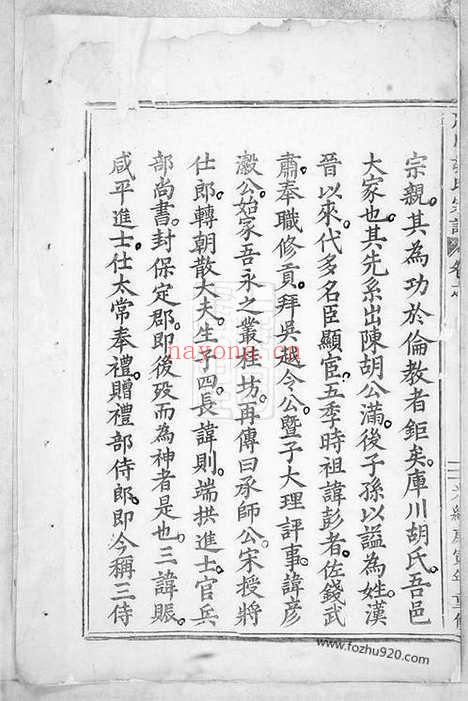 宗親其為功於倫教者鉅矣庫川胡氏吾邑
大家也其先系出陳胡公滿後子孫以謚為姓漢
晉以來代多名臣顯宦五季時祖諱彭者佐錢武
肅奉職修貢拜吳越令公暨子大理評事諱彥
瀫公始家吾永之叢桂坊再傳曰承師公宋授將
仕郎轉朝散大夫生子四長諱則端拱進士官兵
部尚書封保定郡即後歿而為神者是也三諱賑
咸平進士仕太常奉禮贈禮部侍郎即今稱三侍
nayong.cn
www.fozhu920.com